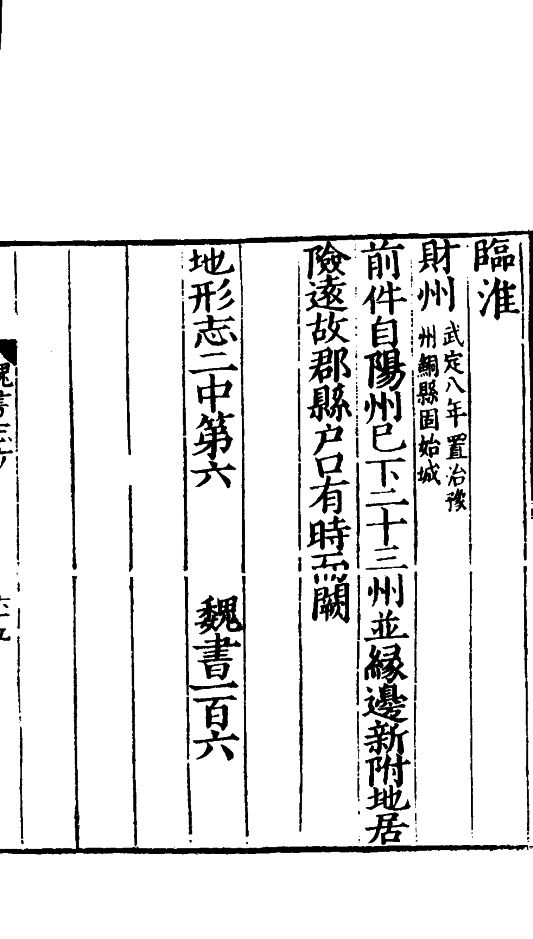 臨淮
財州 武定八年置治豫
州鮦縣固始城
前件自陽州巳下二十三州並縁邊新附地居
險遠故郡縣户口有時而闕
地形志二中第六 魏書一百六